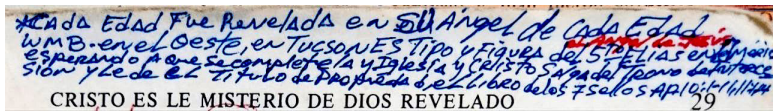 *Cada Edad Fue Revelada en SU Ángel de Cada Edad
WMB. en el Oeste, en Tucson ES Tipo y Figura del 5to ELIAS en
esperando a que se complete la y Iglesia y Cristo Salga del Trono de
sion y Le de el Titulo de Propiedad ó, el Libro de los 7 Sellos Ap 10:1-11
CRISTO ES LE MISTERIO DE DIOS REVELADO 29